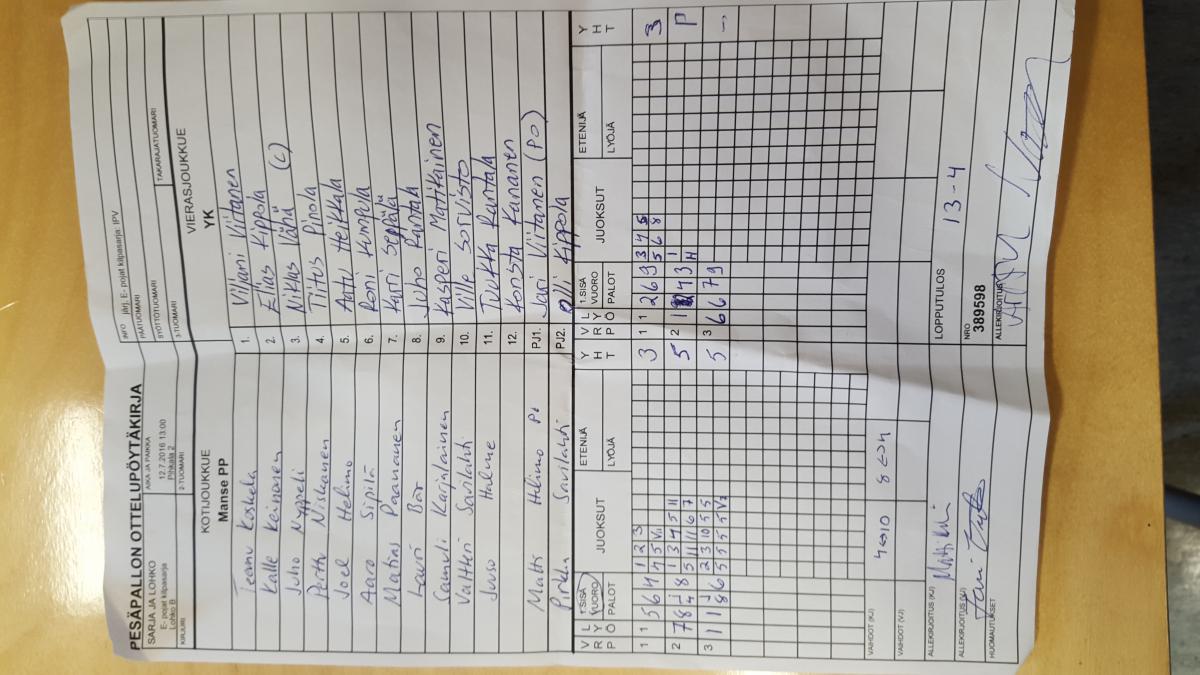 PESÄPALLON OTTELUPÖYTÄKIRJA
INFO järj. E- pojat kilpasarja: IPV
SARJA JA LOHKO
E- pojat kilpasarja
Lohko B
AIKA JA PAIKKA
12.7.2016 13:00
Pihkala 2
PÄÄTUOMARI
SYÖTTÖTUOMARI
TAKARAJATUOMARI
KIRJURI
2-TUOMARI
3-TUOMARI
KOTIJOUKKUE
Manse PP
VIERASJOUKKUE
YK
Teemu Koskela 1. Viljami Viitanen
Kalle Keinonen 2. Elias Kippola
Juho Nyppeli 3. Niklas (C)
Perttu Niskanen 4. Tiitus Pinola
Joel Helimo 5. Aatu Heikkala
Aaro Sipilä 6. Roni Kumpula
Matias Paananen 7. Karri Seppälä
Lauri 8. Juho Rantala
Samuli Karjalainen 9. Kasperi Matikainen
Valtteri Savilahti 10. Ville Sorvisto
Juuso Halme 11. Tuukka Rantala
12. Konsta Kananen
Matti Helimo PJ1. Jari Viitanen (PO)
Pirkka Savilahti PJ2. Olli Kippola
V R P L Y Ö 1.SISÄ VUORO PALOT JUOKSUT ETENIJÄ LYÖJÄ Y H T V R P L Y Ö 1.SISÄ VUORO PALOT JUOKSUT ETENIJÄ LYÖJÄ Y H T
1 1 5 6 4 1 2 3 3 1 1 2 6 9 3 4 5 3
4 5 5 6 8
2 7 8 8 1 3 4 5 11 5 2
5 11 11 6 7 H
3 1 1 2 3 10 5 5 5 3 6 6 7 9
8 6 5 5 5 5
VAIHDOT (KJ) 4↔10
VAIHDOT (VJ)
ALLEKIRJOITUS (KJ)
LOPPUTULOS 13-4
ALLEKIRJOITUS (VJ)
NRO
389598
HUOMAUTUKSET
ALLEKIRJOITUKSET